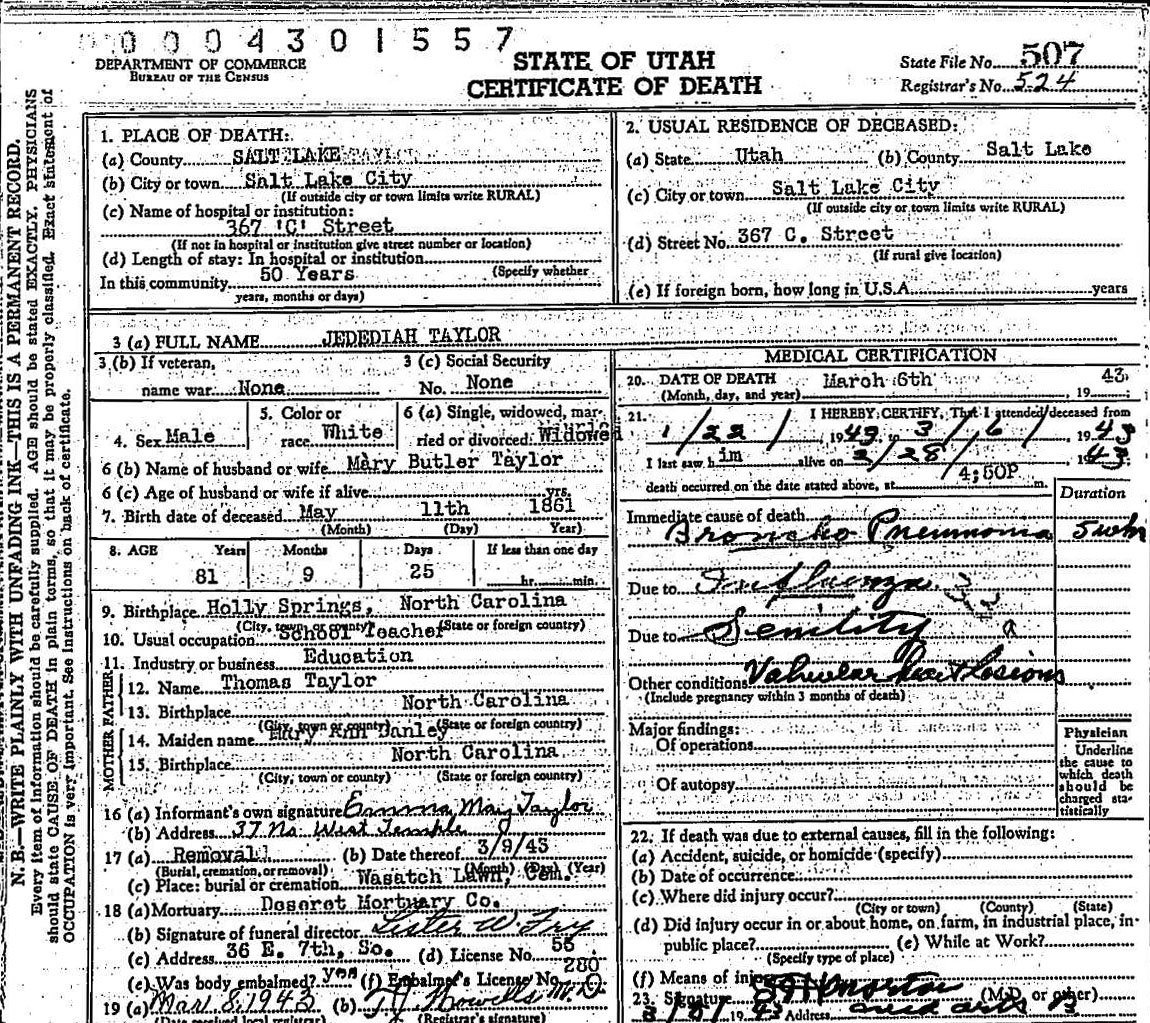 0004301557
DEPARTMENT OF COMMERCE
BUREAU OF THE CENSUS
STATE OF UTAH
CERTIFICATE OF DEATH
State File No. 507
Registrar's No. 524
N. B.—WRITE PLAINLY WITH UNFADING INK—THIS IS A PERMANENT RECORD.
Every item of information should be carefully supplied. AGE should be stated EXACTLY. PHYSICIANS
should state CAUSE OF DEATH in plain terms, so that it may be properly classified. Exact statement of
OCCUPATION is very important. See instructions on back of certificate.
1. PLACE OF DEATH:
(a) County SALT LAKE
(b) City or town Salt Lake City
(If outside city or town limits write RURAL)
(c) Name of hospital or institution:
367 'C' Street
(If not in hospital or institution give street number or location)
(d) Length of stay: In hospital or institution
(Specify whether
In this community 50 Years
years, months or days)
2. USUAL RESIDENCE OF DECEASED:
(a) State Utah (b) County Salt Lake
(c) City or town Salt Lake City
(If outside city or town limits write RURAL)
(d) Street No. 367 C. Street
(If rural give location)
(e) If foreign born, how long in U.S.A. years
3 (a) FULL NAME JEDEDIAH TAYLOR
3 (b) If veteran,
name war None
3 (c) Social Security
No. None
4. Sex Male
5. Color or
race White
6 (a) Single, widowed, mar-
ried or divorced: Widowed
6 (b) Name of husband or wife Mary Butler Taylor
6 (c) Age of husband or wife if alive yrs.
7. Birth date of deceased May 11th 1861
(Month) (Day) Year)
8. AGE Years Months Days If less than one day
81 9 25 hr. min.
9. Birthplace Holly Springs, North Carolina
(City, town or county) (State or foreign country)
10. Usual occupation School Teacher
11. Industry or business Education
FATHER
12. Name Thomas Taylor
13. Birthplace North Carolina
(City, town or county) (State or foreign country)
MOTHER
14. Maiden name Mary Ann Danley
15. Birthplace North Carolina
(City, town or county) (State or foreign country)
16 (a) Informant's own signature Emma May Taylor
(b) Address 37 No. West Temple
17 (a) Removal (b) Date thereof 3/9/43
(Burial, cremation, or removal) (Month) (Day) (Year)
(c) Place: burial or cremation Wasatch Lawn, Cem.
18 (a) Mortuary Deseret Mortuary Co.
(b) Signature of funeral director Lister W Fry
(c) Address 36 E. 7th, So. (d) License No. 55
(e) Was body embalmed? yes (f) Embalmer's License No. 280
19 (a) Mar. 8, 1943 (b) M.D.
(Date received local registrar) (Registrar's signature)
MEDICAL CERTIFICATION
20. DATE OF DEATH March 6th 19 43
(Month, day, and year)
21. I HEREBY CERTIFY, That I attended deceased from
1/22/ 1943 to 3/6/ 1943
I last saw him alive on 2/28/ 1943
death occurred on the date stated above, at 4;50P m.
Duration
Immediate cause of death
Broncho Pneumonia 5 wks
Due to Influenza
Due to Senility
Other conditions Valvular heart lesions
(Include pregnancy within 3 months of death)
Major findings:
Of operations
Of autopsy
Physician
Underline
the cause to
which death
should be
charged sta-
tistically
22. If death was due to external causes, fill in the following:
(a) Accident, suicide, or homicide (specify)
(b) Date of occurrence
(c) Where did injury occur?
(City or town) (County) (State)
(d) Did injury occur in or about home, on farm, in industrial place, in-
public place? (e) While at Work?
(Specify type of place)
(f) Means of injury
23. Signature (M.D. or other)
1943 Address